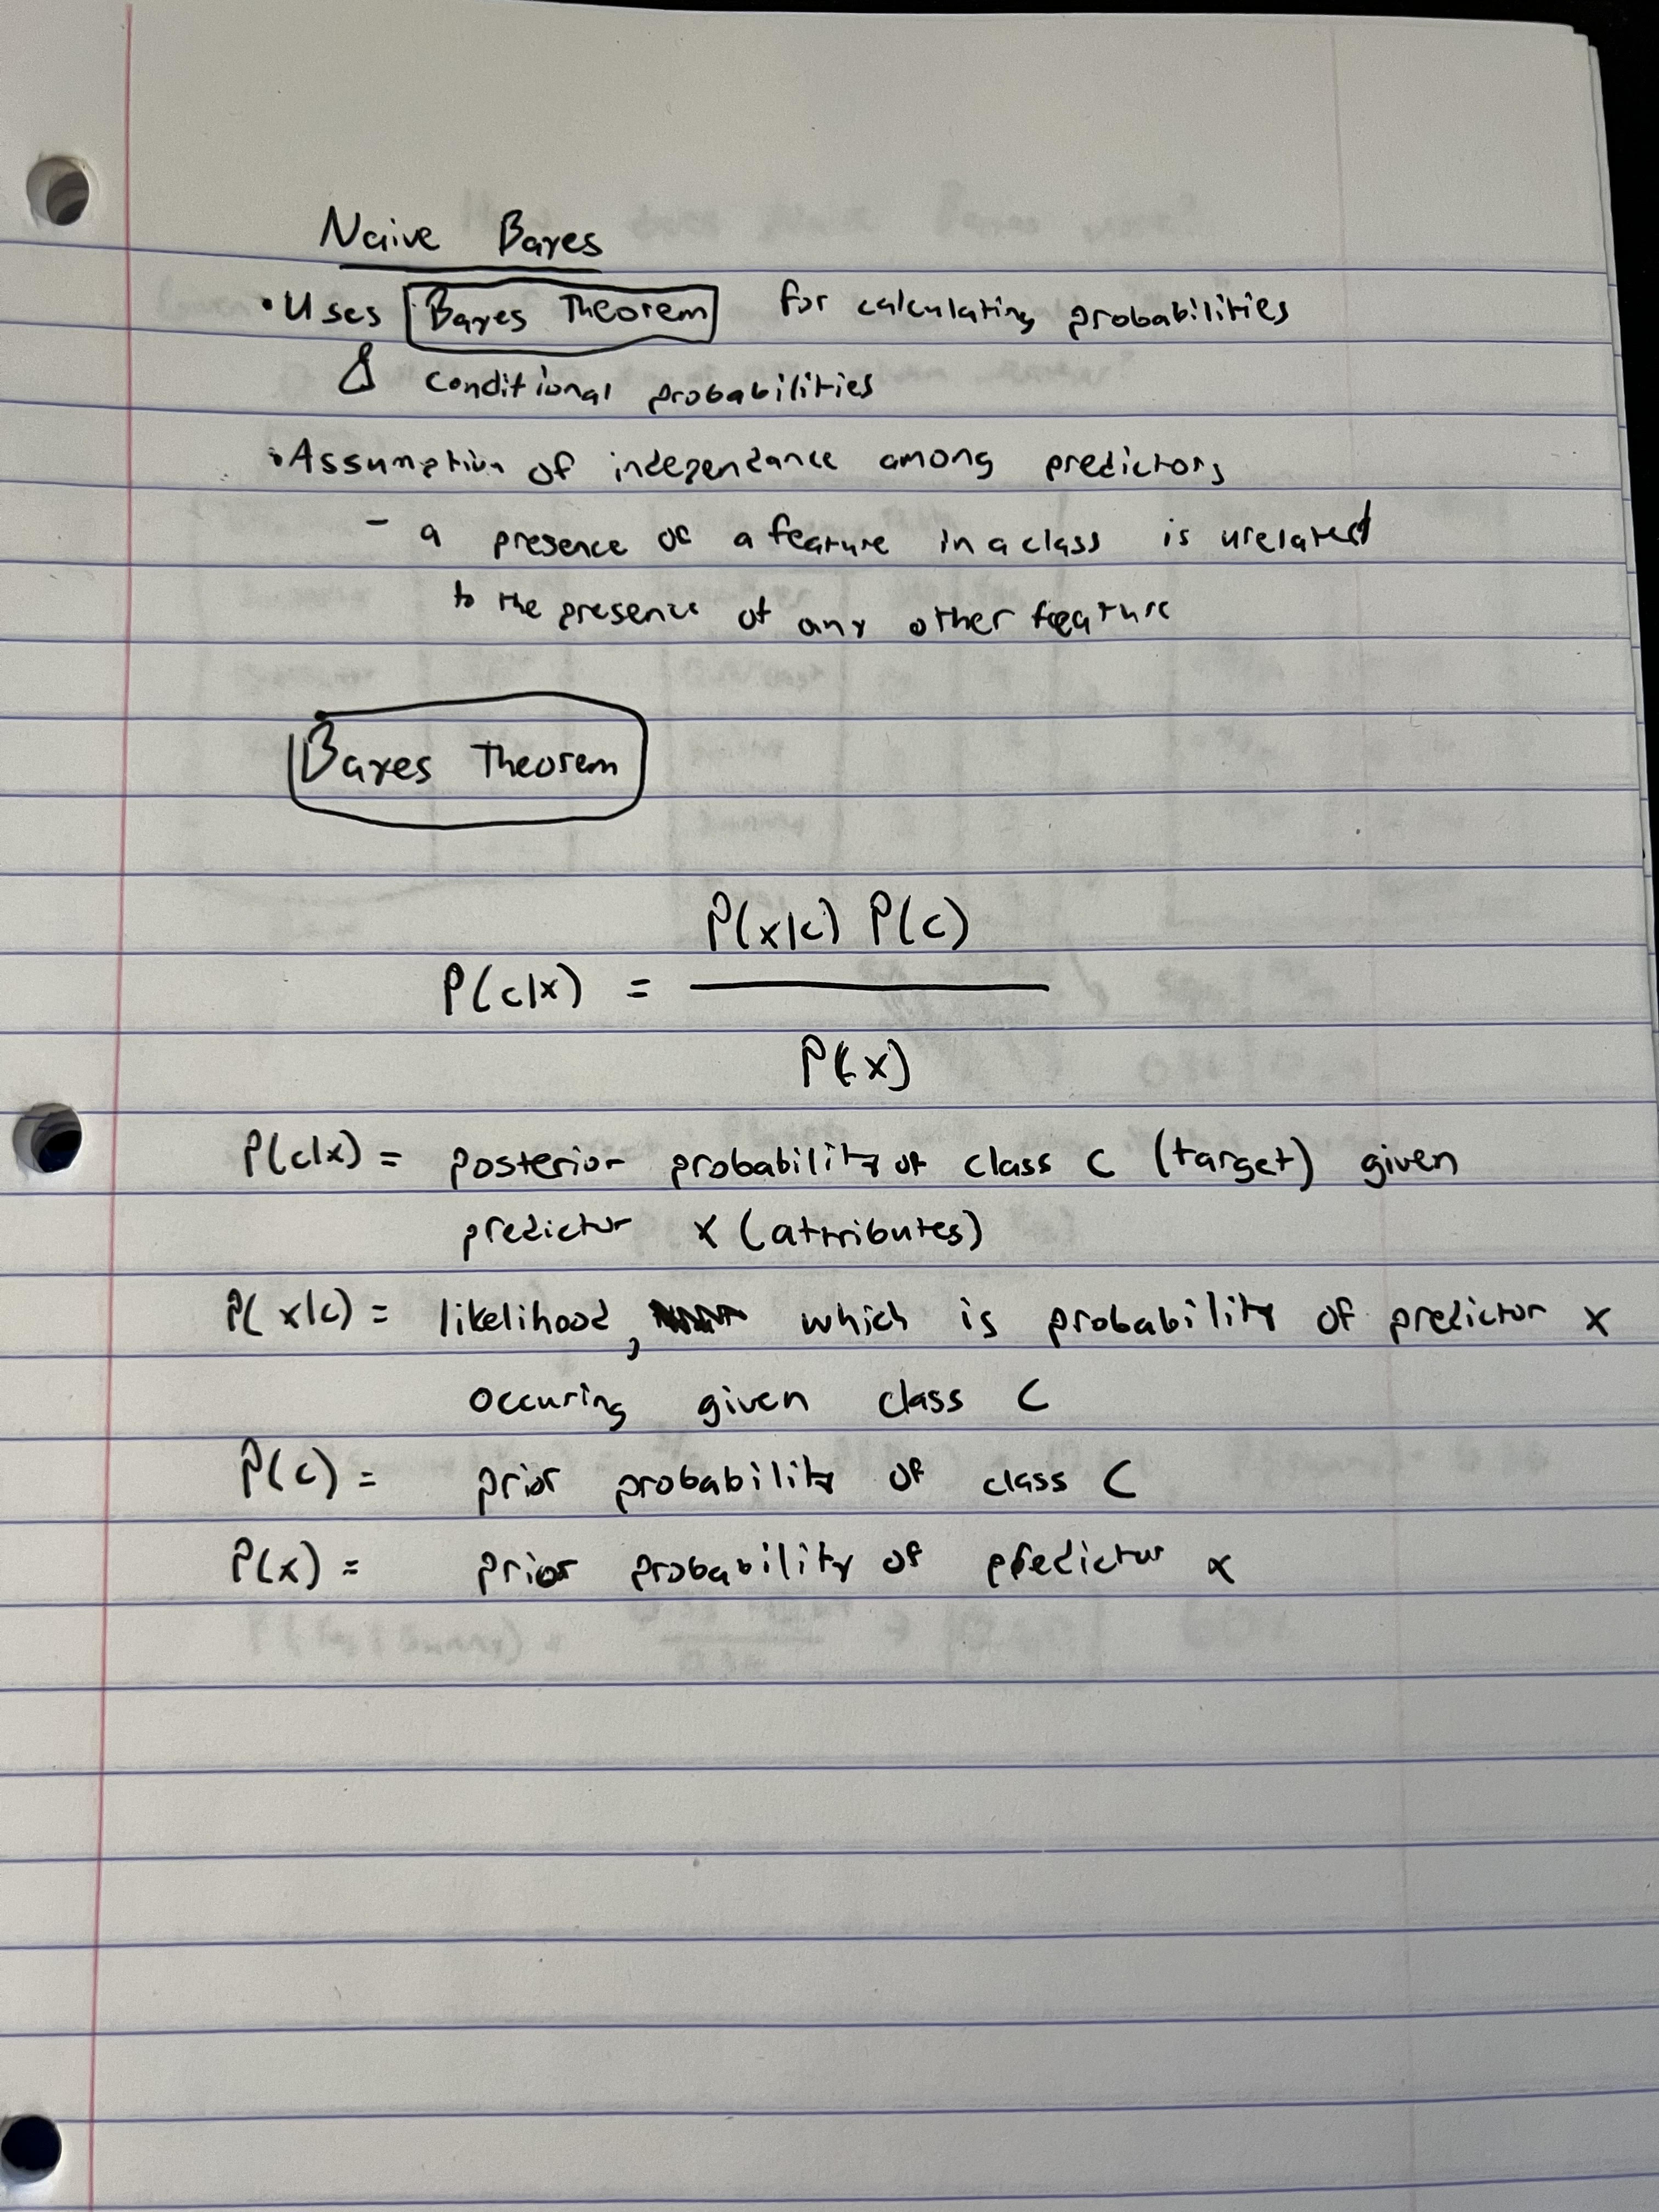 Naive Bayes
• Uses Bayes Theorem for calculating probabilities
& conditional probabilities
• Assumption of independance among predictors
- a presence of a feature in a class is urelated
to the presence of any other feature
Bayes Theorem
P(x|c) P(c)
P(c|x) =
P(x)
P(c|x) = posterior probability of class c (target) given
predictor x (attributes)
P(x|c) = likelihood, which is probability of predictor x
occuring given class C
P(c) = prior probability of class C
P(x) = prior probability of predictor x